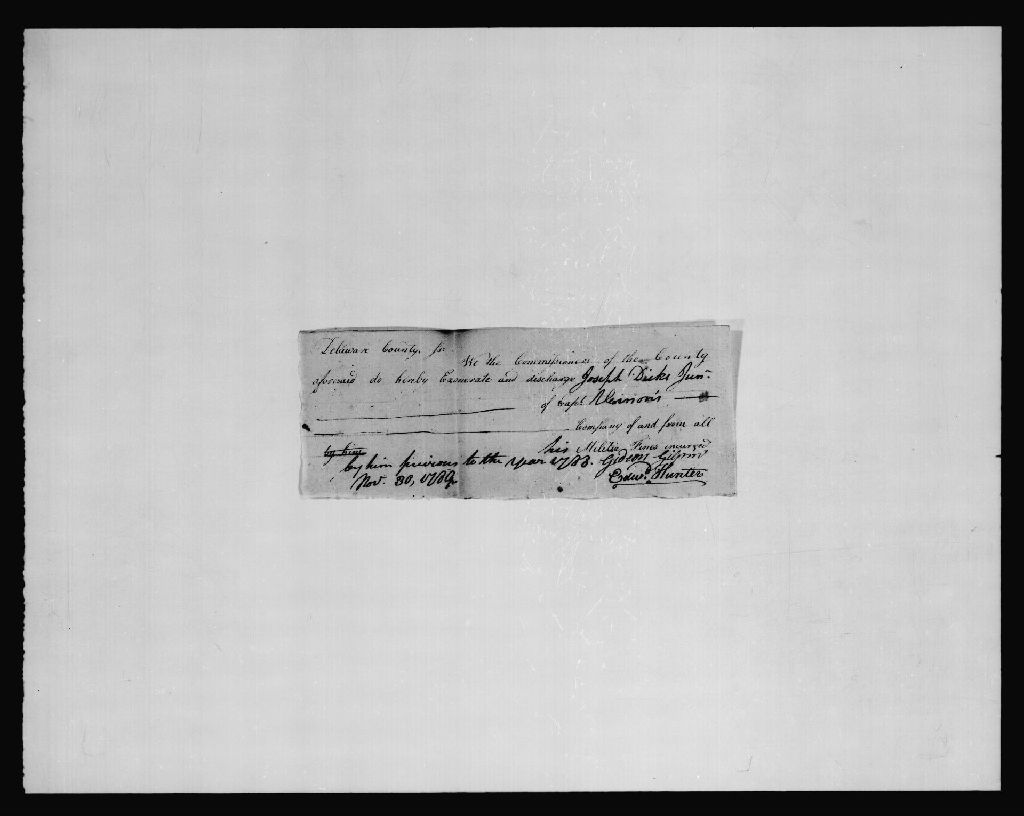 Delaware County, ss.
We the Commissioners of the County
aforesaid do hereby Exonerate and discharge Joseph Dicks Junr.
of Capt. Vernon's
Company of and from all
his Militia Fines incurred
by him
by him previous to the year 1783. Gideon Gilpin
Nov. 30, 1789. Edwd. Hunter